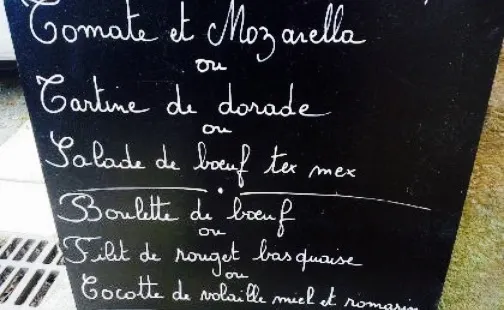 Tomate et Mozarella
ou
Tartine de dorade
ou
Salade de bœuf tex mex
Boulette de bœuf
ou
Filet de rouget basquaise
ou
Cocotte de volaille miel et romarin